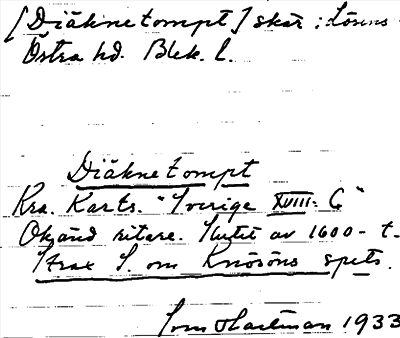 [Diäknetompt] skär : Lösens
Östra hd. Blek. l.
Diäknetompt
Kra. Kartv. "Sverige XVIII: 6"
Okänd ritare. Slutet av 1600-t.
Strax S. om Knösöns spets.
Hartman 1933